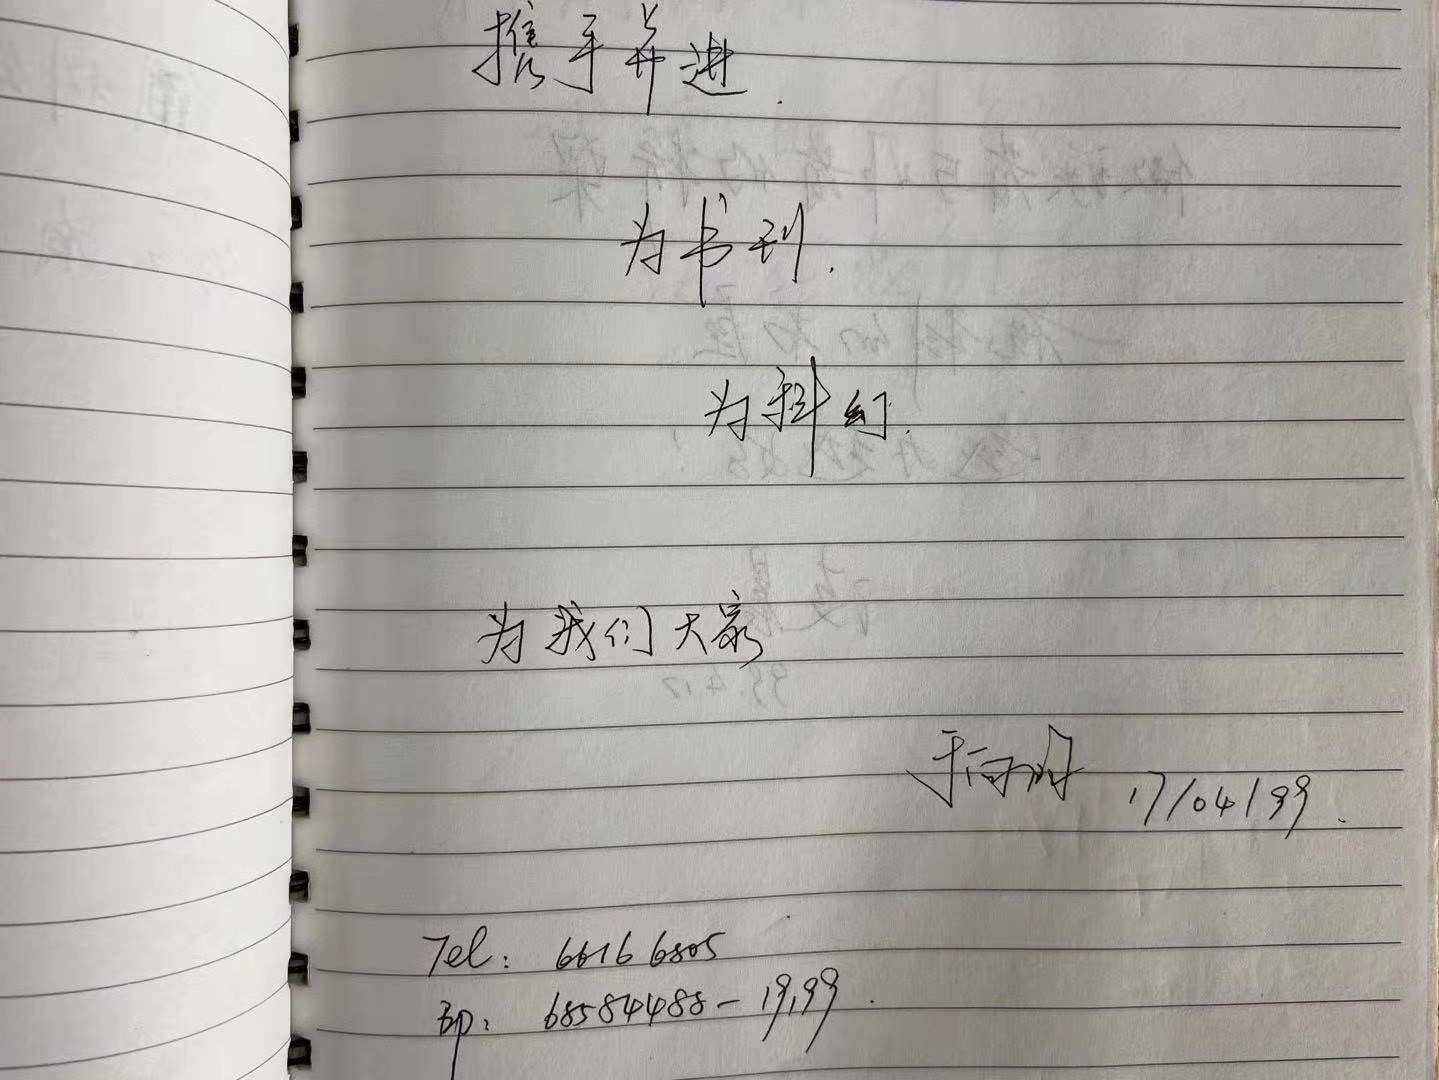 携手并进.
为书刊.
为科幻.
为我们大家
于向昀 17/04/99.
Tel: 66166805
BP: 68584488-1999.